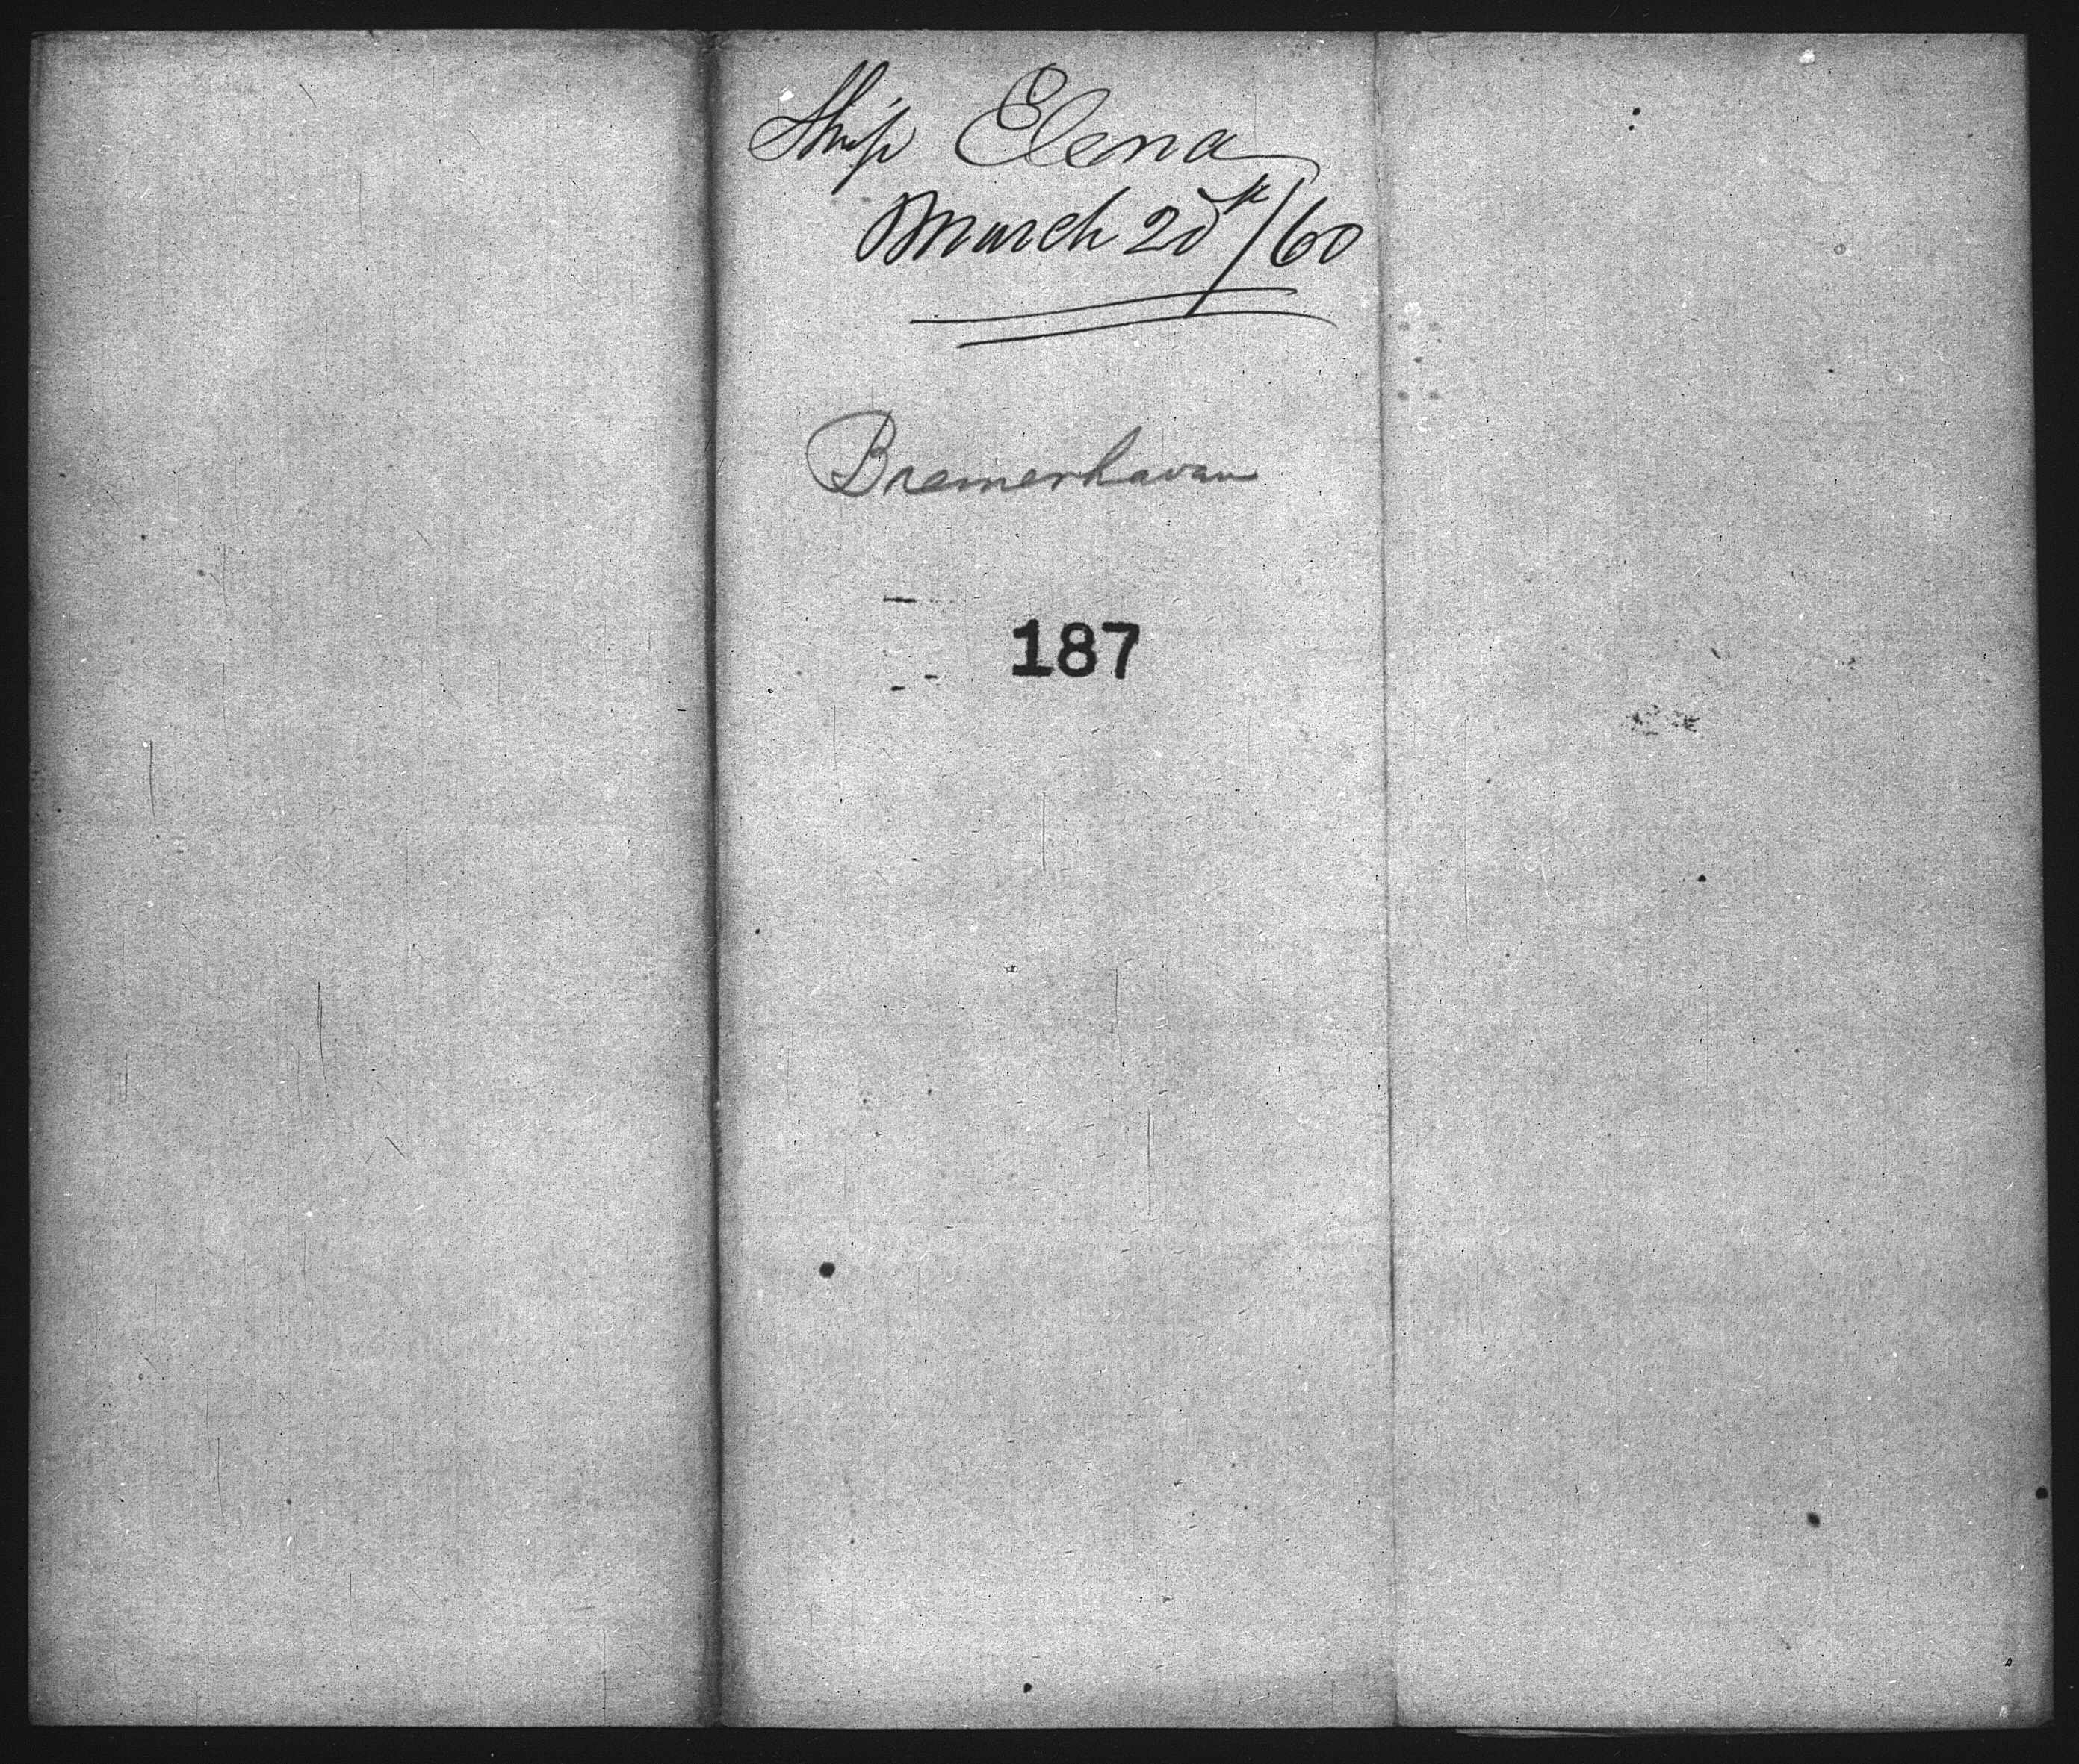 Ship Elena
March 20th/60
Bremerhaven
187